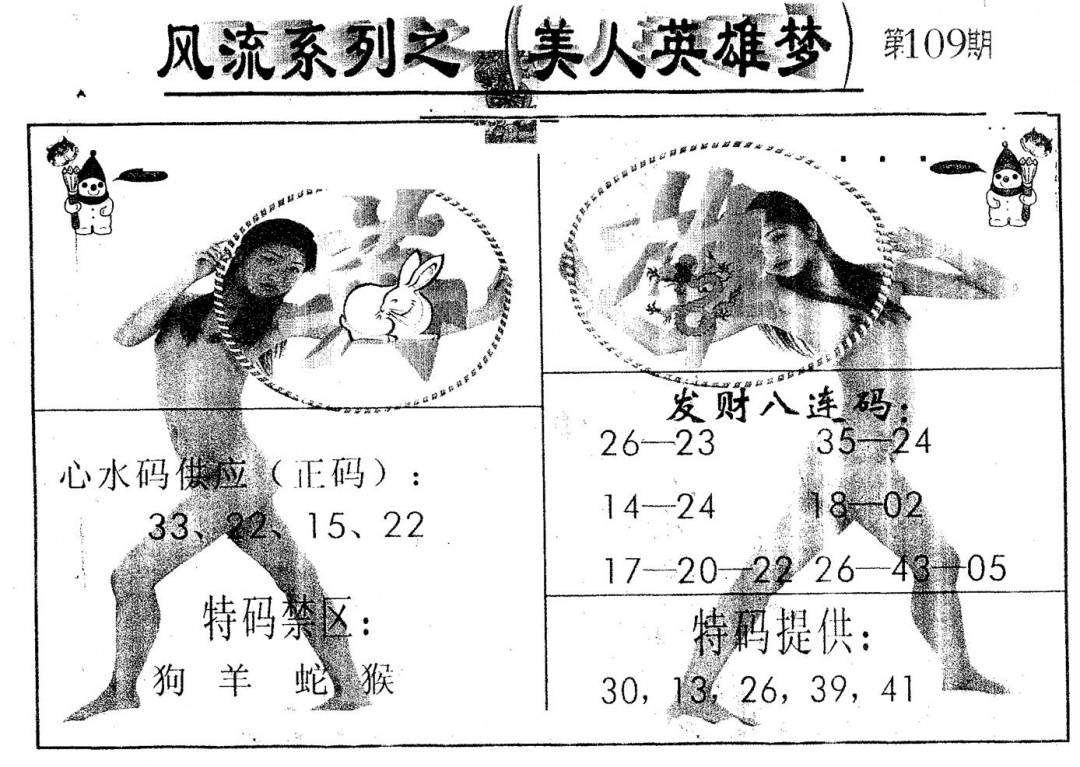 风流系列之（美人英雄梦） 第109期
心水码供应（正码）：
33、22、15、22
特码禁区：
狗 羊 蛇 猴
发财八连码：
26—23 35—24
14—24 18—02
17—20—22 26—43—05
特码提供：
30，13，26，39，41